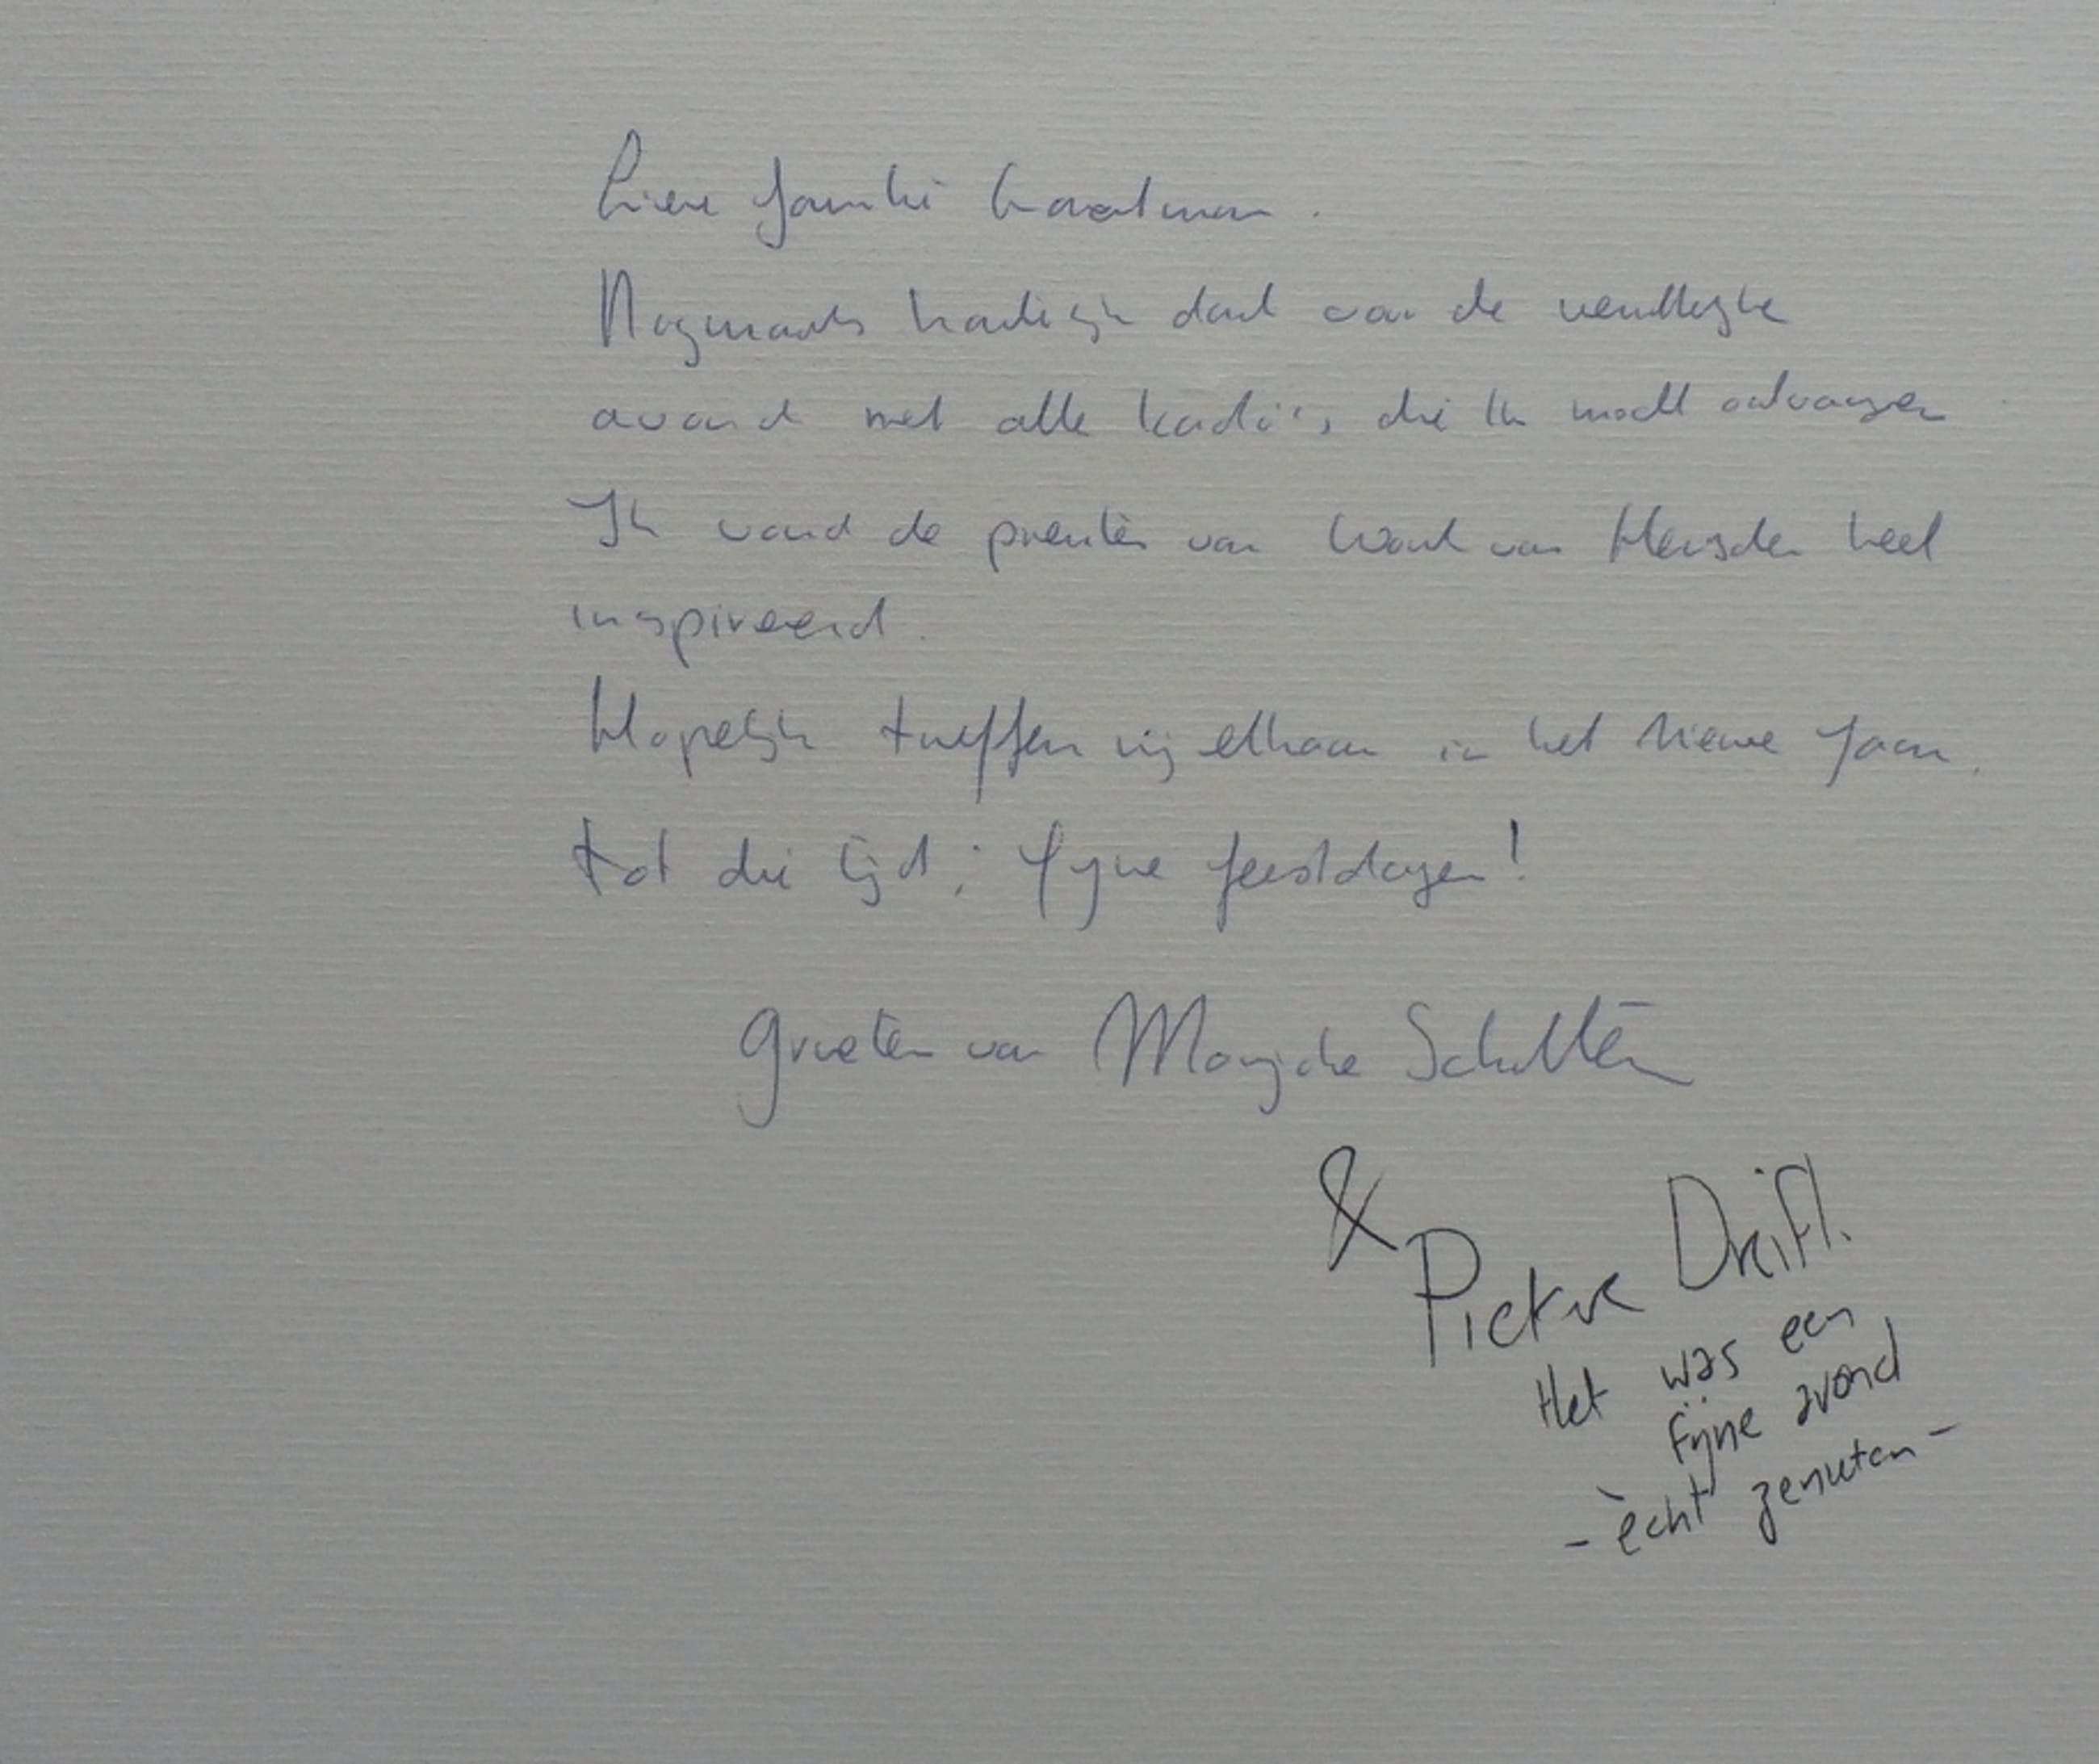 Lieve familie
Nogmaals hartelijk dank voor de
avond met alle kado's, die ik mocht ontvangen
Ik vond de prenten van van Heusden heel
inspirerend.
Hopelijk treffen wij elkaar in het nieuwe jaar.
tot die tijd; fijne feestdagen!
groeten van Marijcke Schulten
& Pieter
Het was een
fijne avond
- ècht genieten -